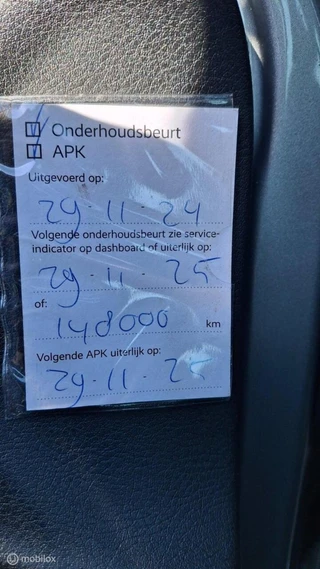 Onderhoudsbeurt
APK
Uitgevoerd op:
29-11-24
Volgende onderhoudsbeurt zie service-
indicator op dashboard of uiterlijk op:
29-11-25
of:
148000 km
Volgende APK uiterlijk op:
29-11-25
mobilox